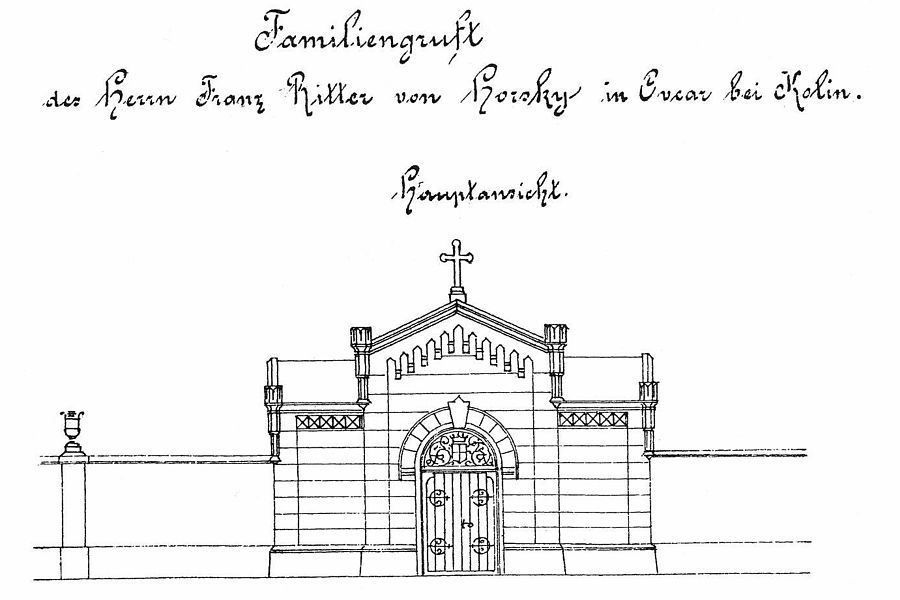 Familiengruft
des Herrn Franz Ritter von Horsky in Ovcar bei Kolin.
Hauptansicht.